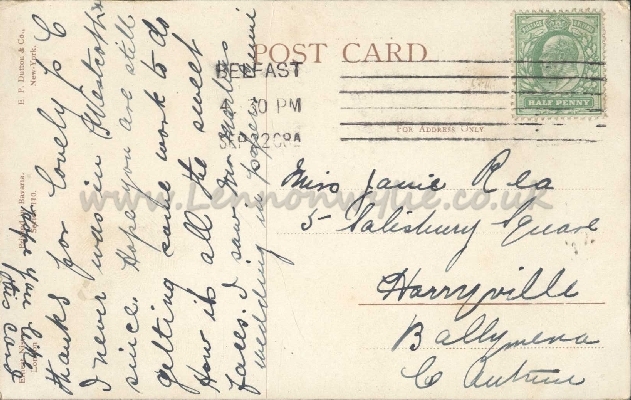 POST CARD
BELFAST
4 30 PM
SP 12 08A
HALF PENNY
FOR ADDRESS ONLY
Miss Janie Rea
5 Salisbury Square
Harryville
Ballymena
Co Antrim
www.Lennonwylie.co.uk
E. P. Dutton & Co.,
New-York.
thanks for lovely p c
I never was in
since. Hope you are still
getting some work to do
How is all the sweet
faces. I saw
wedding in paper
hope you like
this card